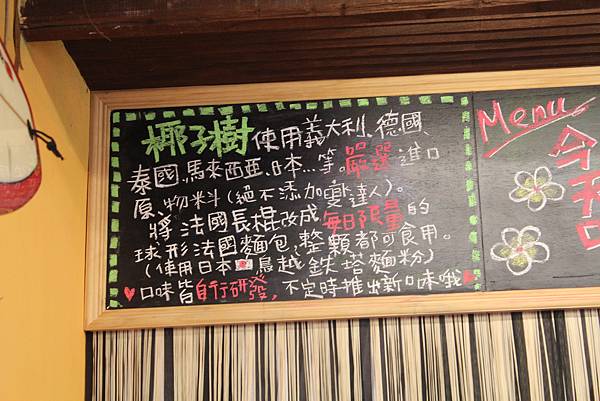 椰子樹使用義大利、德國、
泰國、馬來西亞、日本…等。嚴選進口
原物料(絕不添加變達人)。
將法國長棍改成每日限量的
球形法國麵包,整顆都可食用。
(使用日本鳥越鉄塔麵粉)
口味皆自行研發,不定時推出新口味哦
Menu
今天
口